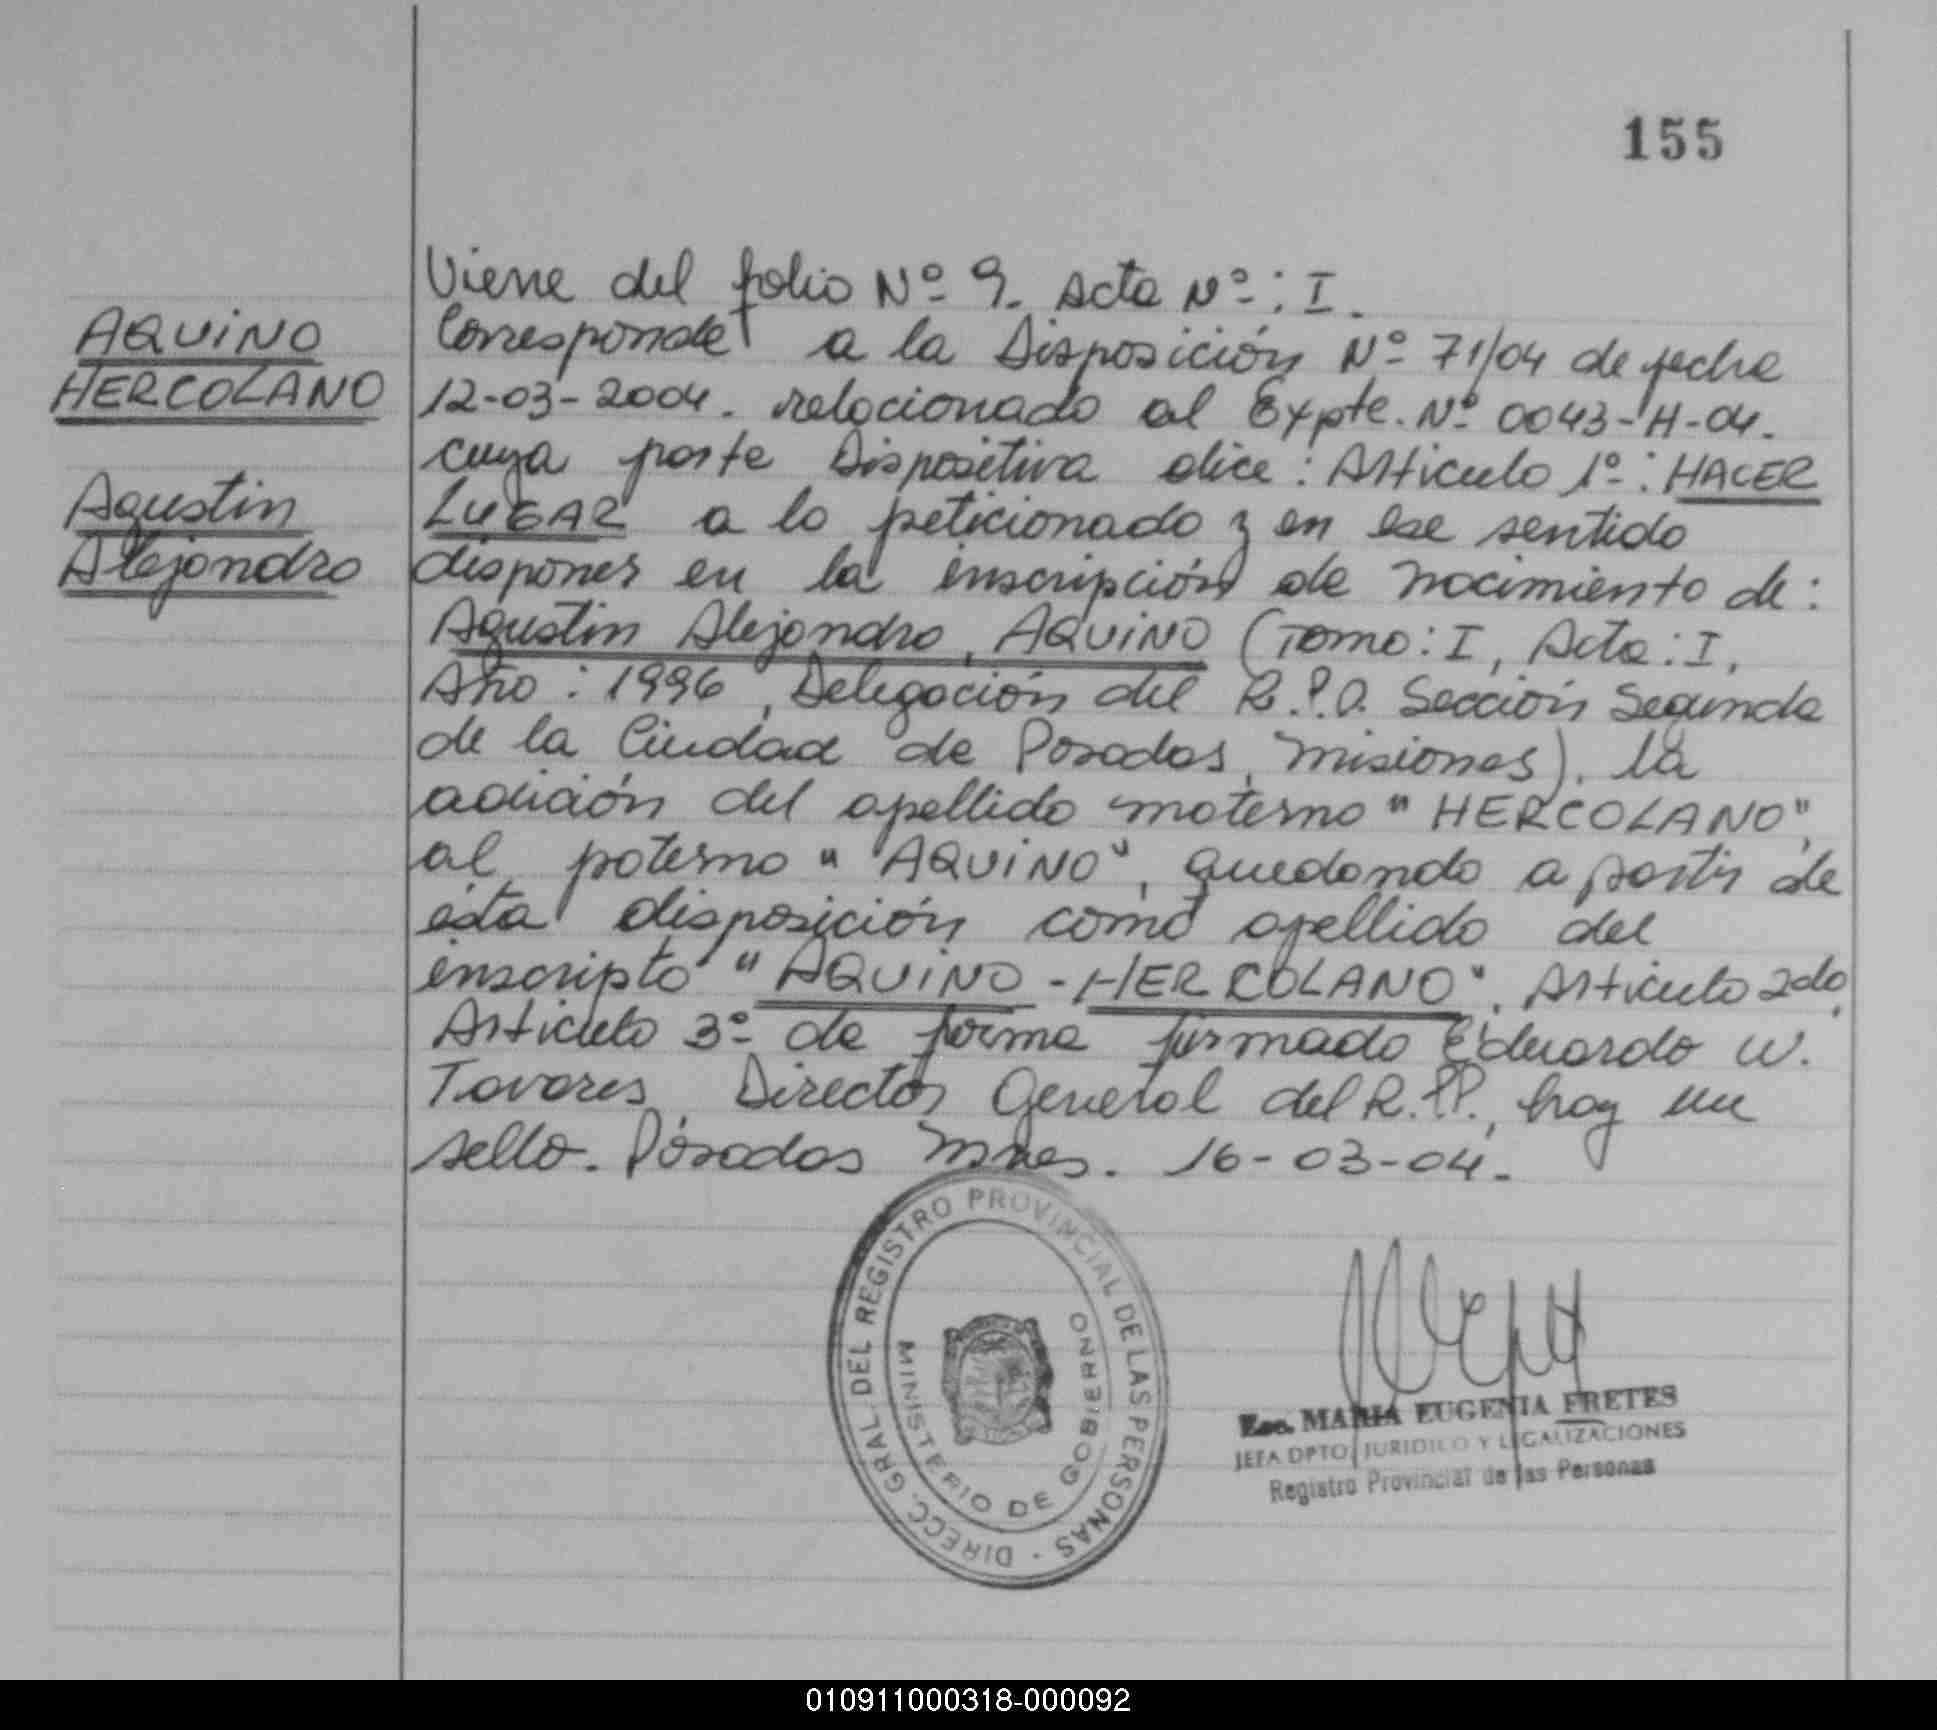 155
AQUINO
HERCOLANO
Agustin
Alejandro
Viene del folio Nº 9. Acta Nº: I.
Corresponde a la Disposición Nº 71/04 de fecha
12-03-2004. relacionado al Expte. Nº 0043-H-04.
cuya parte Dispositiva dice: Articulo 1º: HACER
LUGAR a lo peticionado y en ese sentido
disponer en la inscripción de nacimiento de:
Agustin Alejandro, AQUINO (Tomo: I, Acta: I,
Año: 1996, Delegación del R.P.P. Sección Segunda
de la Ciudad de Posadas, Misiones). la
adición del apellido materno "HERCOLANO",
al paterno "AQUINO", quedando a partir de
ésta disposición como apellido del
inscripto "AQUINO-HERCOLANO". Articulo 2do,
Articulo 3º de forma firmado Eduardo W.
Tavares, Director General del R.P.P., hay un
sello. Posadas Mnes. 16-03-04.
DIRECC. GRAL. DEL REGISTRO PROVINCIAL DE LAS PERSONAS -
MINISTERIO DE GOBIERNO
Esc. MARIA EUGENIA FRETES
JEFA DPTO. JURIDICO Y LEGALIZACIONES
Registro Provincial de las Personas
010911000318-000092